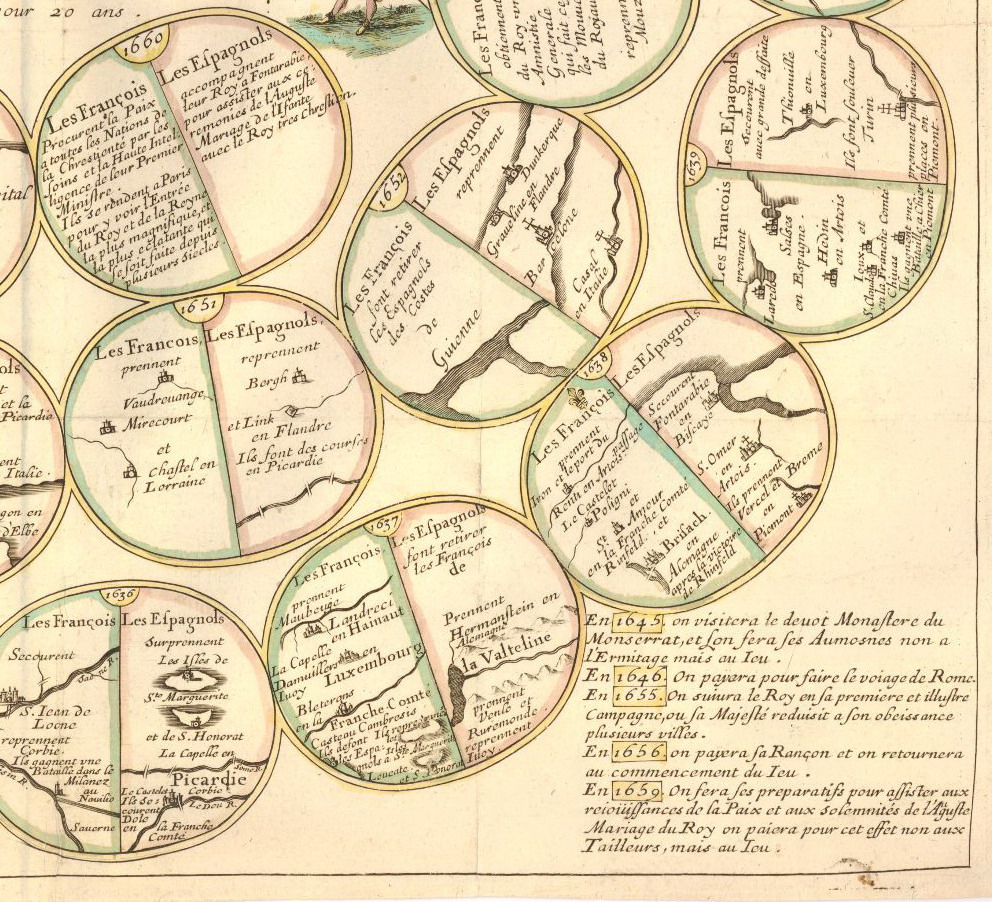 our 20 ans.
1660
Les François
Procurent la Paix
a toutes les Nations de
la Chrestienté par les
soins et la Haute Intel-
ligence de leur Premier
Ministre.
Ils se rendent a Paris
pour y voir l'Entrée
du Roy et de la Reyne
la plus magnifique, et
la plus eclatante qui
se soit faite depuis
plusieurs Siecles.
Les Espagnols
accompagnent
leur Roy a Fontarabie
pour assister aux ce-
remonies de l'Auguste
Mariage de l'Infante
avec le Roy tres Chrestien.
Les Franç
obtiennent
du Roy vn
Amnistie
Generale
qui fait ce
les Mouue
du Royau
reprenn
Mouz
1639
Les Espagnols
Secourent
auec grande deffaite
Thionuille
en
Luxembourg
Ils font soulever
Turin
prennent plusieurs
places en
Piemont
Les Francois
prennent
Laredo
Salses
en Espagne.
Hedin
en Artois
Ioux et
S. Claude
en la Franche Comté
Chiuas
Ils gagnent vne
Bataille a Chier
en Piemont
1652
Les Espagnols
reprennent
Dunkerque
Graueline en
Flandre
Barcelone
Casal
en Italie
Les François
font retirer
les Espagnols
des Costes
de
Guienne
1651
Les Francois,
prennent
Vaudreuange,
Mirecourt
et
Chastel en
Lorraine
Les Espagnols,
reprennent
Bergh
et Link
en Flandre
Ils font des courses
en Picardie
ols
et la
Picardie
ent
Italie.
gon en
d'Elbe
ital
1638
Les Espagnols
Secourent
Fontarabie
en
Biscaye
S. Omer
en
Artois.
Ils prennent
Vercel
Breme
en
Piemont
Les François
prennent
le port du passage
Renti en Artois
Le Castelet
Poligni
et
Arbois
la Franche Comté
et
Rinfeld.
Brisach.
en
Alemagne
apres la victoire
de Rhinfeld
1637
Les François
prennent
Maubeuge
Landreci
en Hainaut
La Capelle
Damuillers en
Iuoy
Luxembourg
Bleterans
en la
Franche Comté
Casteau Cambresis
Leucate
Les Espagnols
font retirer
les François
de
Prennent
Hermanstein en
Alemagne
la Valteline
prennent
Venlo et
Ruremonde.
reprennent
Iuoy
1636
Les François
Secourent
S. Iean de
Locne
reprennent
Corbie.
Ils gagnent vne
Bataille dans le
Milanez
au
Nauilio
Sauerne
Les Espagnols
Surprennent
Les Isles de
Ste. Marguerite
et de S. Honorat
La Capelle en
Picardie
Le Castelet
Corbie
Ils se-
courent
Dole
en
la Franche
Comté
En 1645, on visitera le deuot Monastere du
Monserrat, et l'on fera ses Aumosnes non a
l'Ermitage mais au Ieu.
En 1646. On payera pour faire le voiage de Rome.
En 1655. On suiura le Roy en sa premiere et illustre
Campagne, ou sa Majesté reduisit a son obeissance
plusieurs villes.
En 1656. on payera sa Rançon et on retournera
au commencement du Ieu.
En 1659. On fera ses preparatifs pour assister aux
reioüissances de la Paix et aux solemnités de l'Aguste
Mariage du Roy on paiera pour cet effet non aux
Tailleurs, mais au Ieu.